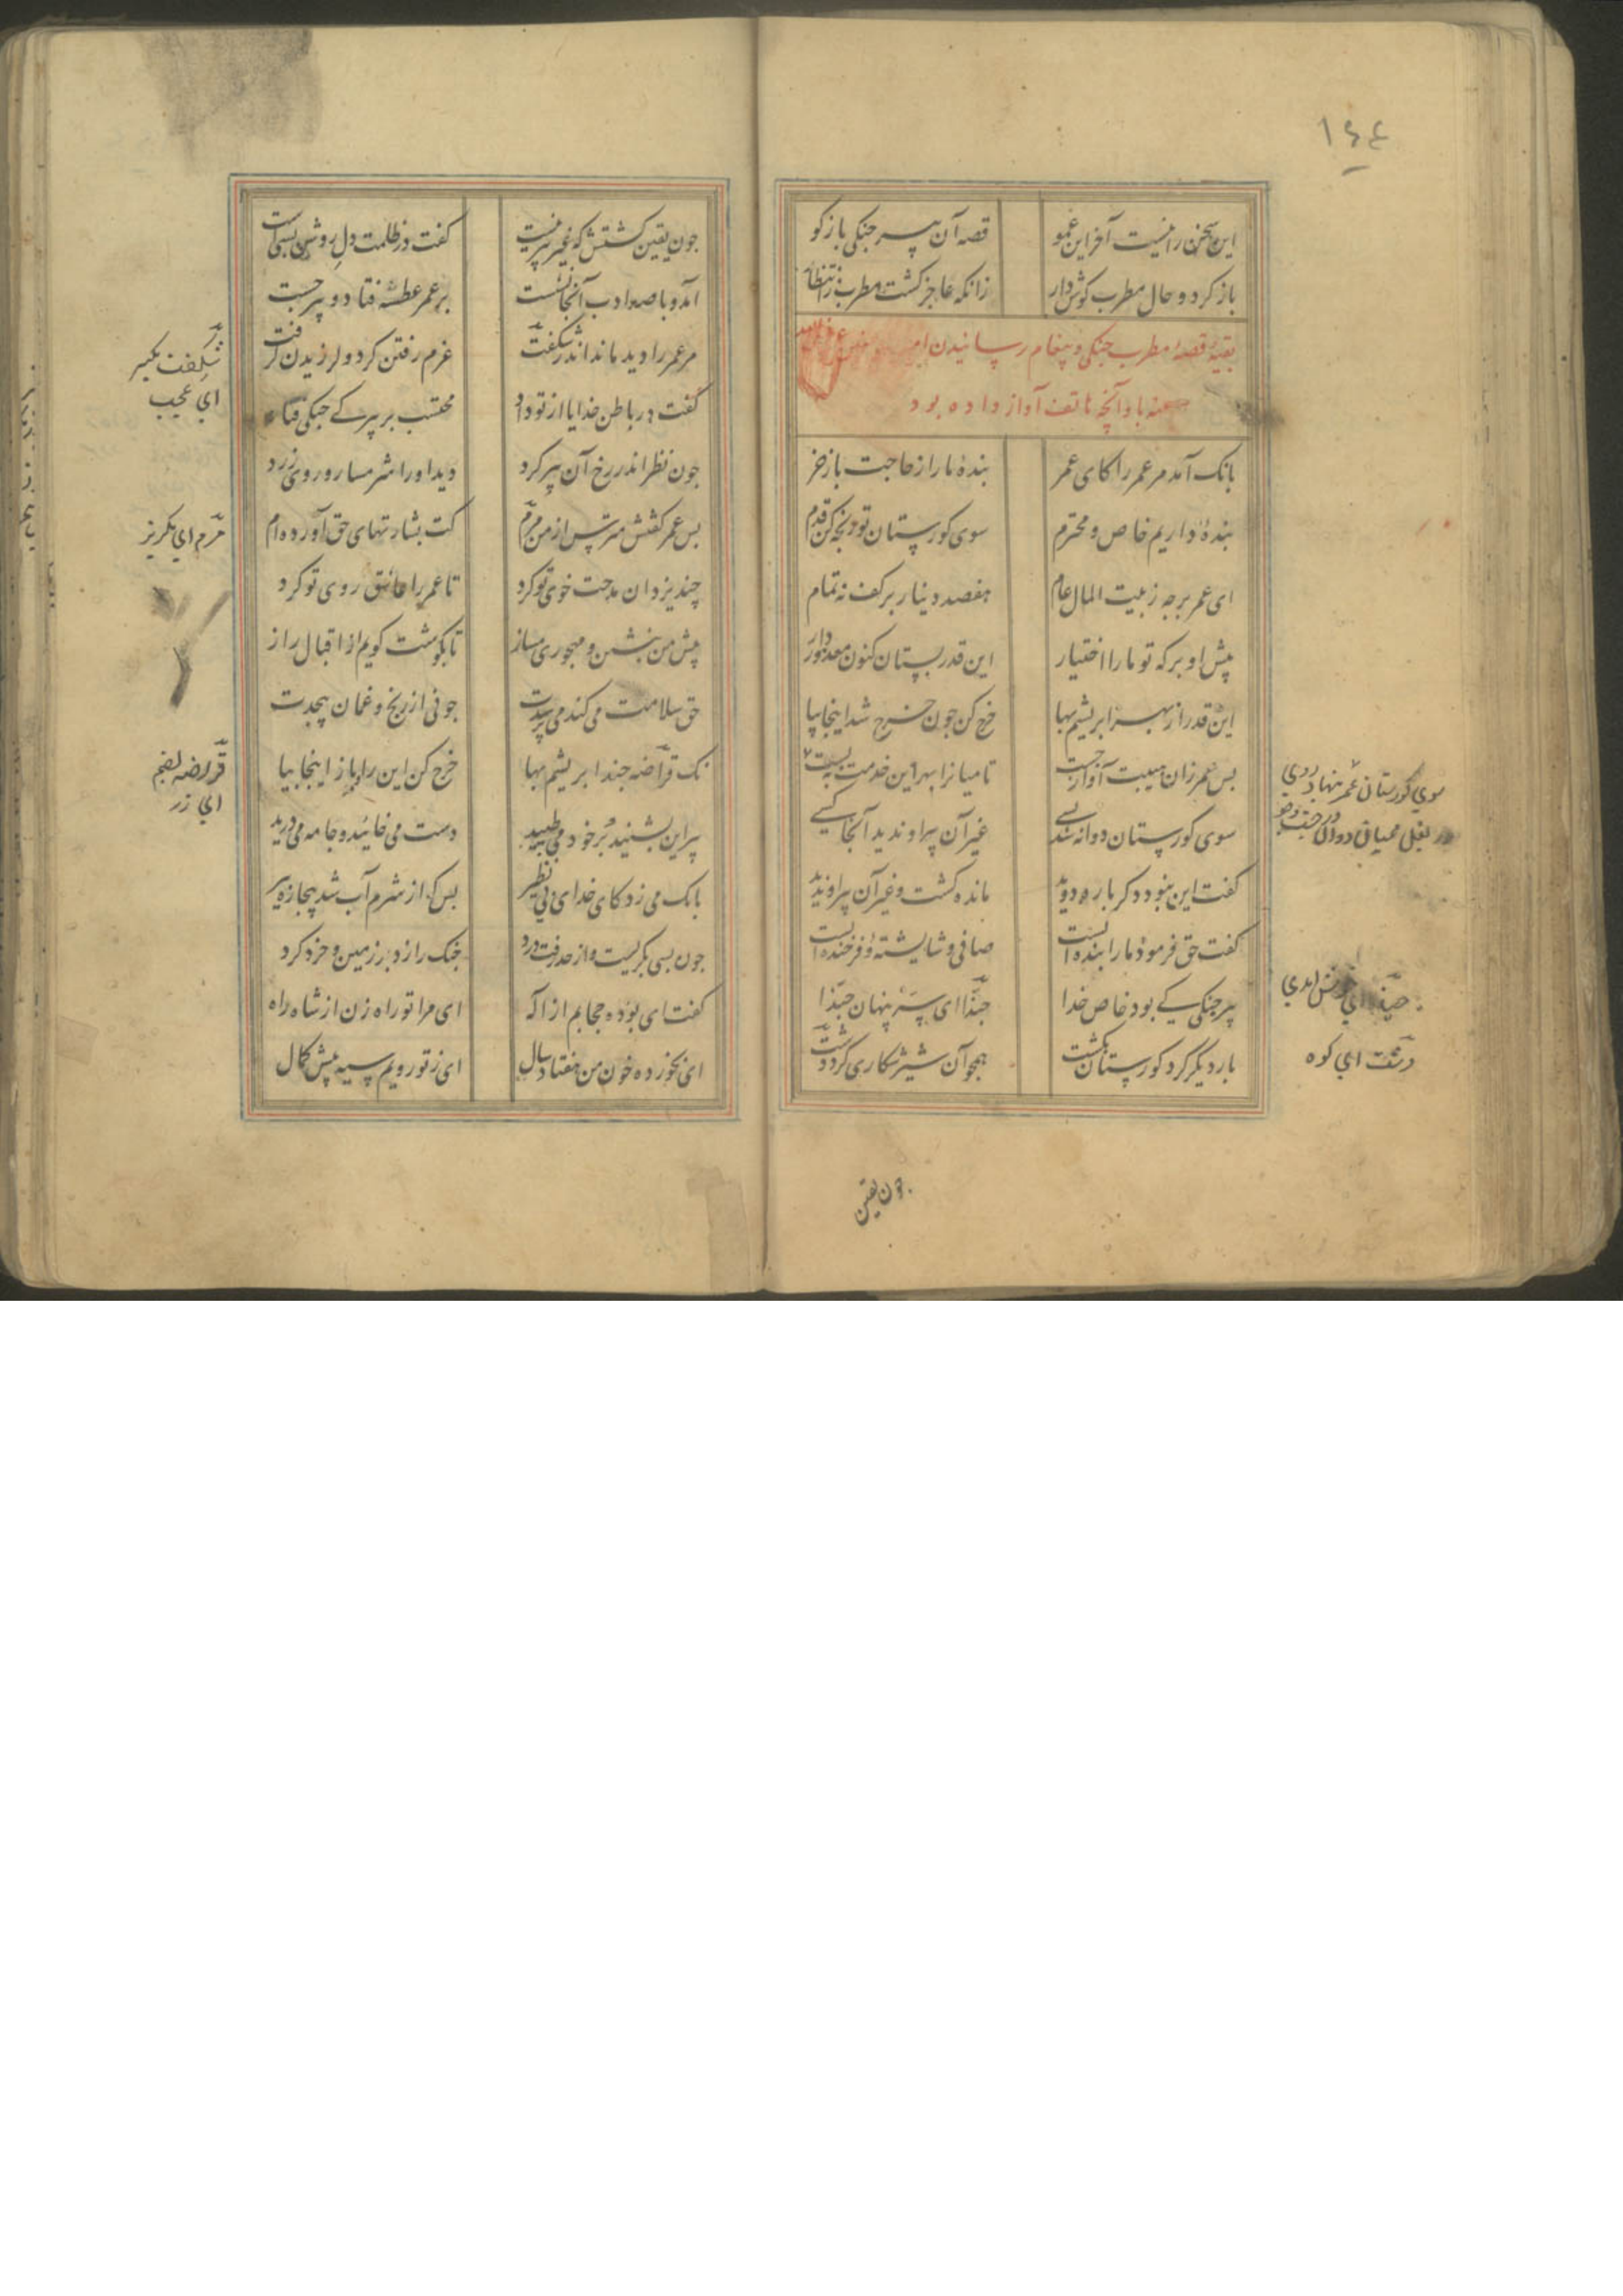 ١٤٤
این سخن را نیست آخر این عمو	قصه آن پیر جنکی باز کو
باز کرد و حال مطرب کوش دار	زانکه عاجز کشت مطرب ز انتظار
بقیهٔ قصهٔ مطرب جنکی و پیغام رسانیدن
عنه باو آنچه هاتف آواز داده بود
بانک آمد مر عمر را کای عمر	بندهٔ ما را ز حاجت باز خر
بندهٔ داریم خاص و محترم	سوی کورستان تو رنجه کن قدم
ای عمر برجه ز بیت المال عام	هفصد دینار بر کف نه تمام
پیش او بر که تو ما را اختیار	این قدر بستان کنون معذور دار
این قدر از بهر ابریشم بها	خرج کن جون خرج شد اینجا بیا
بس عمر زان هیبت آواز جست	تا میانرا بهر این خدمت به بست
سوی کورستان عمر بنهاد روی
در بغل همیان دوان در جست و جو
سوی کورستان دوانه شد بسی	غیر آن پیر او ندید آنجا کسی
کفت این نبود دکر باره دوید	مانده کشت و غیر آن پیر او ندید
کفت حق فرمود ما را بنده ایست	صافی و شایسته و فرخنده ایست
پیر جنکی کی بود خاص خدا	حبّذا ای سرّ پنهان حبّذا
حبّذا ای خوش ایدی
بار دیگر کرد کورستان بکشت	همجو آن شیر شکاری کرد دشت
دشت ای کوه
جون یقین
جون یقین کشتش که غیر پیر نیست	کفت در ظلمت دل روشن بسیست
آمد و با صد ادب آنجا نشست	بر عمر عطسه فتاد و پیر جست
مر عمر را دید ماند اندر شکفت	عزم رفتن کرد و لرزیدن کرفت
شکفت بکسر
ای عجب
کفت در باطن خدایا از تو داد	محتسب بر پیرکی جنکی فتاد
جون نظر اندر رخ آن پیر کرد	دید او را شرمسار و روی زرد
بس عمر کفتش مترس از من مرم	کت بشارتهای حق آورده ام
مرم ای مکریز
چند یزدان مدحت خوی تو کرد	تا عمر را عاشق روی تو کرد
پیش من بنشین و مهجوری مساز	تا بکوشت کویم از اقبال راز
حق سلامت می کند می پرسدت	جونی از رنج و غمان بیحدت
نک قراضه جند ابریشم بها	خرج کن این را و باز اینجا بیا
قراضه لضم
ای زر
پیر این بشنید بر خود می طپید	دست می خائید و جامه می درید
بانک می زد کای خدای بی نظیر	بس که از شرم آب شد بیچاره پیر
جون بسی بکریست و از حد رفت درد	جنک را زد بر زمین و خرد کرد
کفت ای بوده حجابم از اله	ای مرا تو راه زن از شاه راه
ای بخورده خون من هفتاد سال	ای ز تو رویم سیه پیش کمال